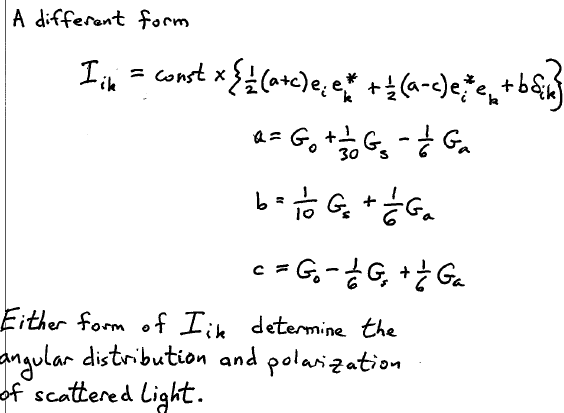 A different form
I_ik = const x {1/2(a+c)e_i e_k^* + 1/2(a-c)e_i^* e_k + bδ_ik}
a = G_0 + 1/30 G_s - 1/6 G_a
b = 1/10 G_s + 1/6 G_a
c = G_0 - 1/6 G_s + 1/6 G_a
Either form of I_ik determine the
angular distribution and polarization
of scattered light.